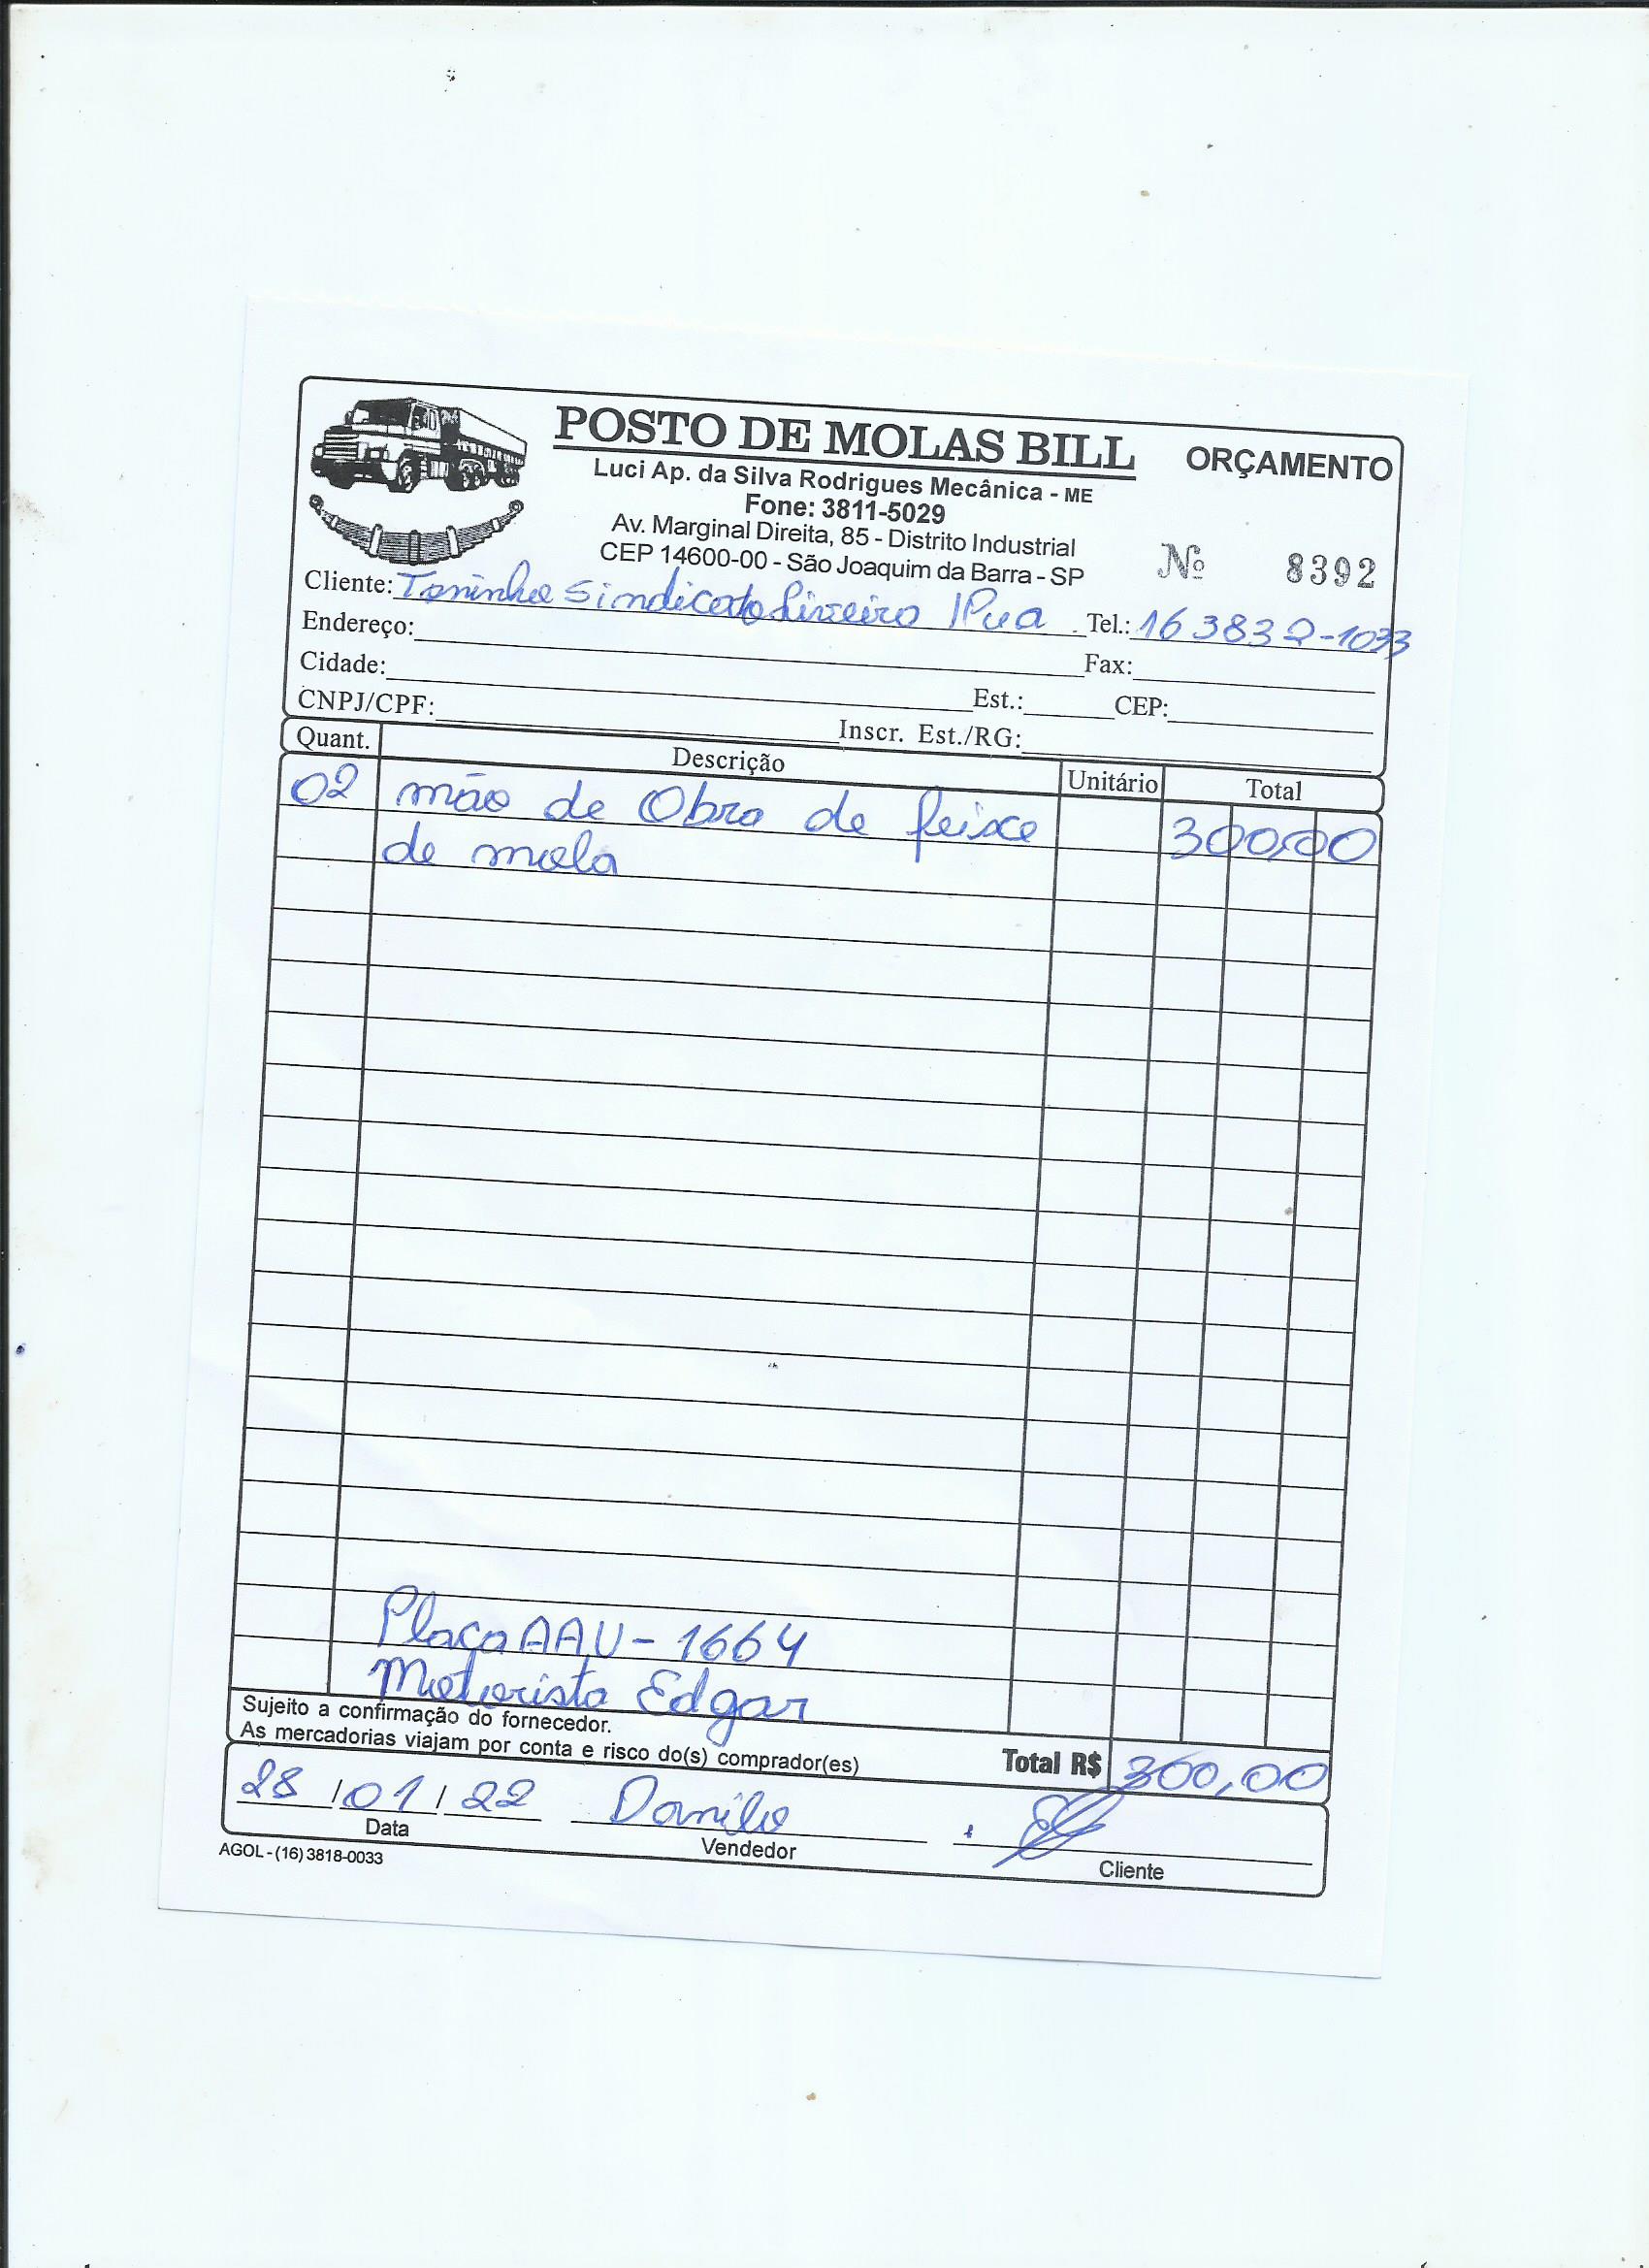 POSTO DE MOLAS BILL
ORÇAMENTO
Luci Ap. da Silva Rodrigues Mecânica - ME
Fone: 3811-5029
Av. Marginal Direita, 85 - Distrito Industrial
CEP 14600-00 - São Joaquim da Barra - SP
Nº 8392
Cliente: Toninho Sindicato Ipua Tel.: 16 3832-1033
Endereço: Fax:
Cidade: Est.: CEP:
CNPJ/CPF: Inscr. Est./RG:
Quant. Descrição Unitário Total
02 mão de Obra de feixe 300,00
de mola
Placa AAU-1664
Motorista Edgar
Sujeito a confirmação do fornecedor.
As mercadorias viajam por conta e risco do(s) comprador(es)
Total R$ 300,00
28/01/22 Danilo
Data Vendedor Cliente
AGOL - (16) 3818-0033